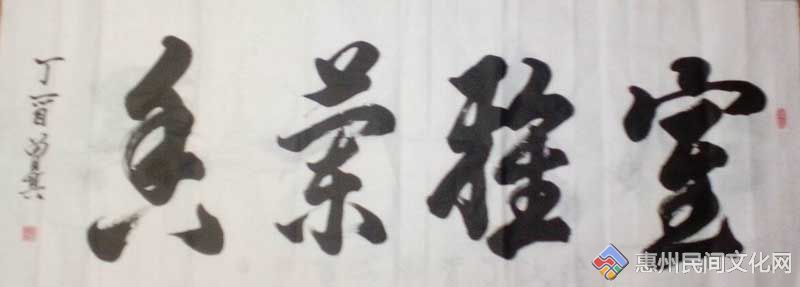 室雅蘭香
丁酉
惠州民间文化网